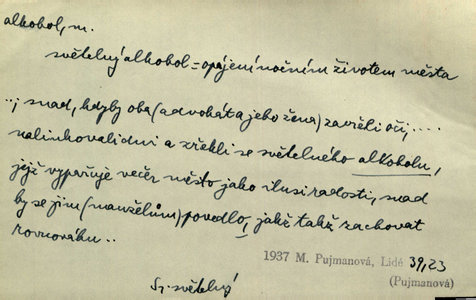 alkohol, m.
světelný alkohol = opájení nočním životem města
..; snad, kdyby oba (advokát a jeho žena) zavřeli oči, ....
nalinkovali dni a zřekli se světelného alkoholu,
jejž vypařuje večer město jako ilusi radosti, snad
by se jim (manželům) povedlo, jakž takž zachovat
rovnováhu..
1937 M. Pujmanová, Lidé 39,23
(Pujmanová)
Sr. světelný